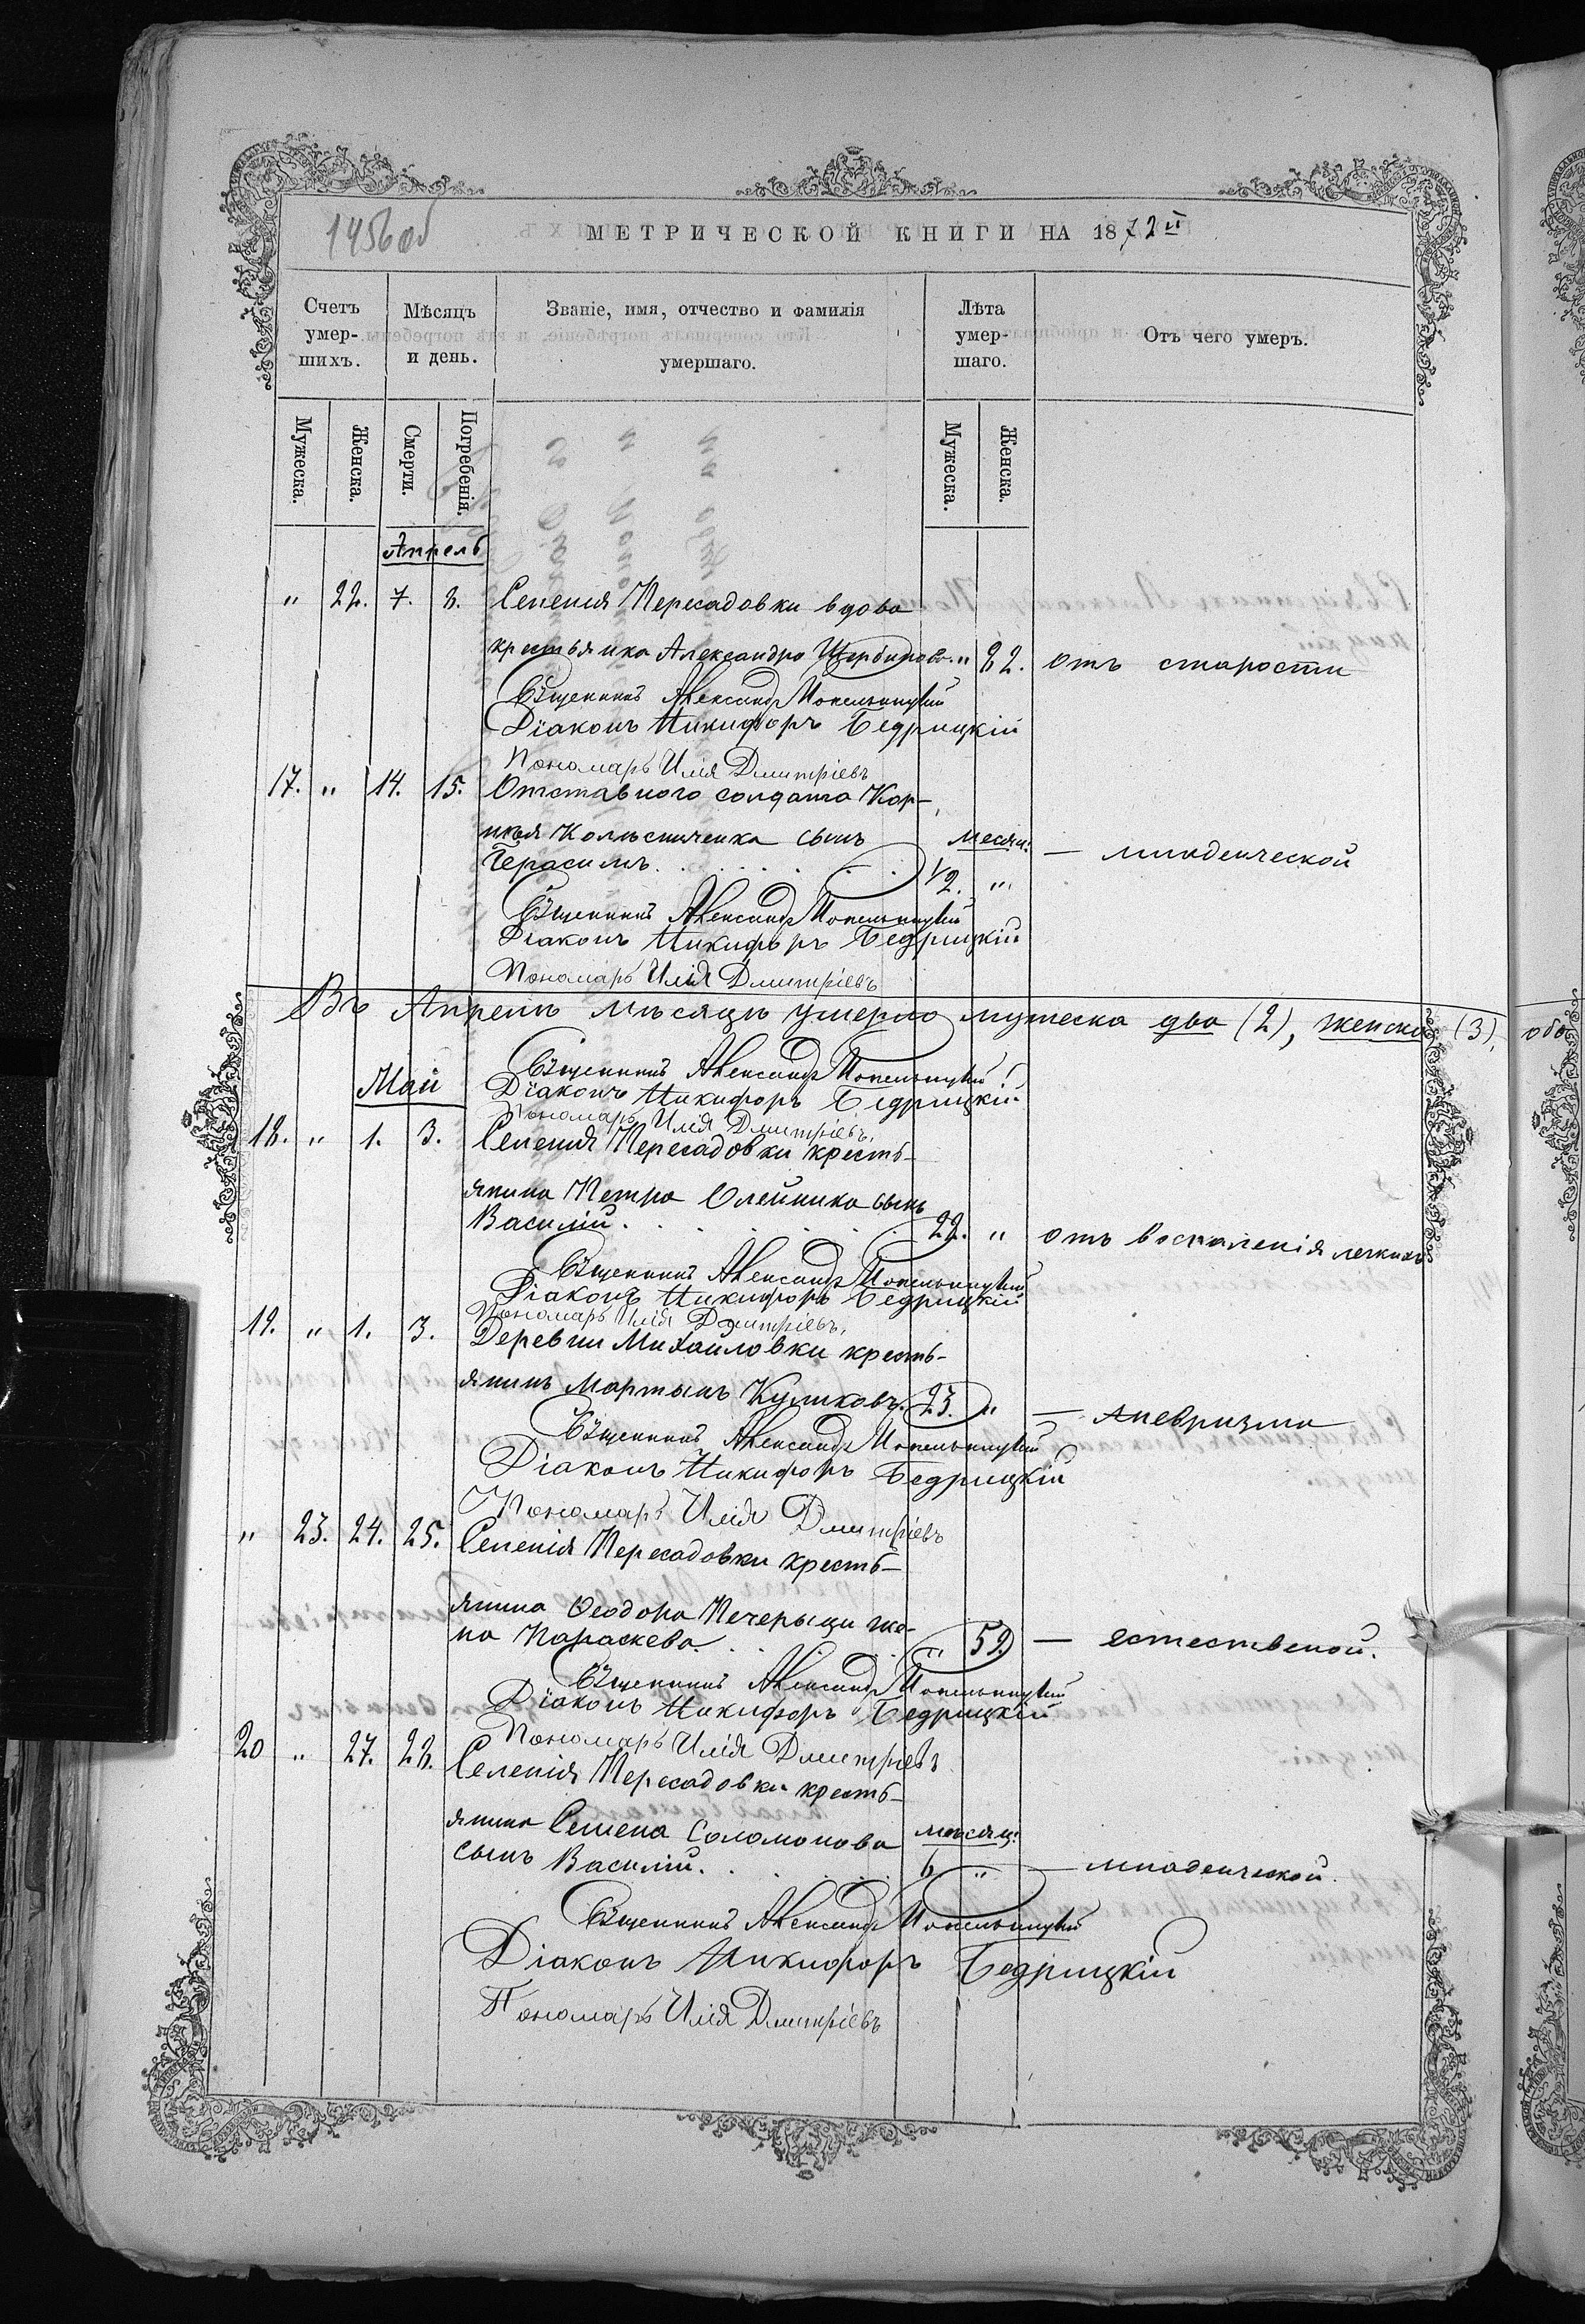 1456об
МЕТРИЧЕСКОЙ КНИГИ НА 1872й
Счетъ умершихъ.
Мѣсяцъ и день.
Званіе, имя, отчество и фамилія умершаго.
Лѣта умершаго.
Отъ чего умеръ.
Мужеска. Женска. Смерти. Погребенія. Мужеска. Женска.
Апрель
" 22. 7. 8. Селенія Пересадовки вдова
крестьянка Александра Щербинова " 82. отъ старости
Священникъ Александръ
Діаконъ Никифоръ Бедрицкій
Пономарь Илія Дмитріевъ
17. " 14. 15. Отставного солдата Кор-
нѣя Колѣсниченка сынъ месяц:
Герасимъ. 1/2. " — младенческой
Священникъ Александръ
Діаконъ Никифоръ Бедрицкій
Пономарь Илія Дмитріевъ
Въ Апрелѣ мѣсяцѣ умерло мужеска два (2), женска (3), обо
Священникъ Александръ
Май Діаконъ Никифоръ Бедрицкій
Пономарь Илія Дмитріевъ.
18. " 1. 3. Селенія Пересадовки кресть-
янина Петра Олейника сынъ
Василій. 22. " отъ воспаленія легкихъ
Священникъ Александръ
Діаконъ Никифоръ Бедрицкій
Пономарь Илія Дмитріевъ.
19. " 1. 3. Деревни Михайловки кресть-
янинъ Мартынъ Куликовъ. 23. " — аневризма
Священникъ Александръ
Діаконъ Никифоръ Бедрицкій
Пономарь Илія Дмитріевъ
" 23. 24. 25. Селенія Пересадовки кресть-
янина Ѳеодора Печерыци же-
на Параскева. " 59. — естественой.
Священникъ Александръ
Діаконъ Никифоръ Бедрицкій
Пономарь Илія Дмитріевъ
20 " 27. 28. Селенія Пересадовки кресть-
янина Семена Соломонова мѣсяц:
сынъ Василій. 6 " — младенческой.
Священникъ Александръ
Діаконъ Никифоръ Бедрицкій
Пономарь Илія Дмитріевъ